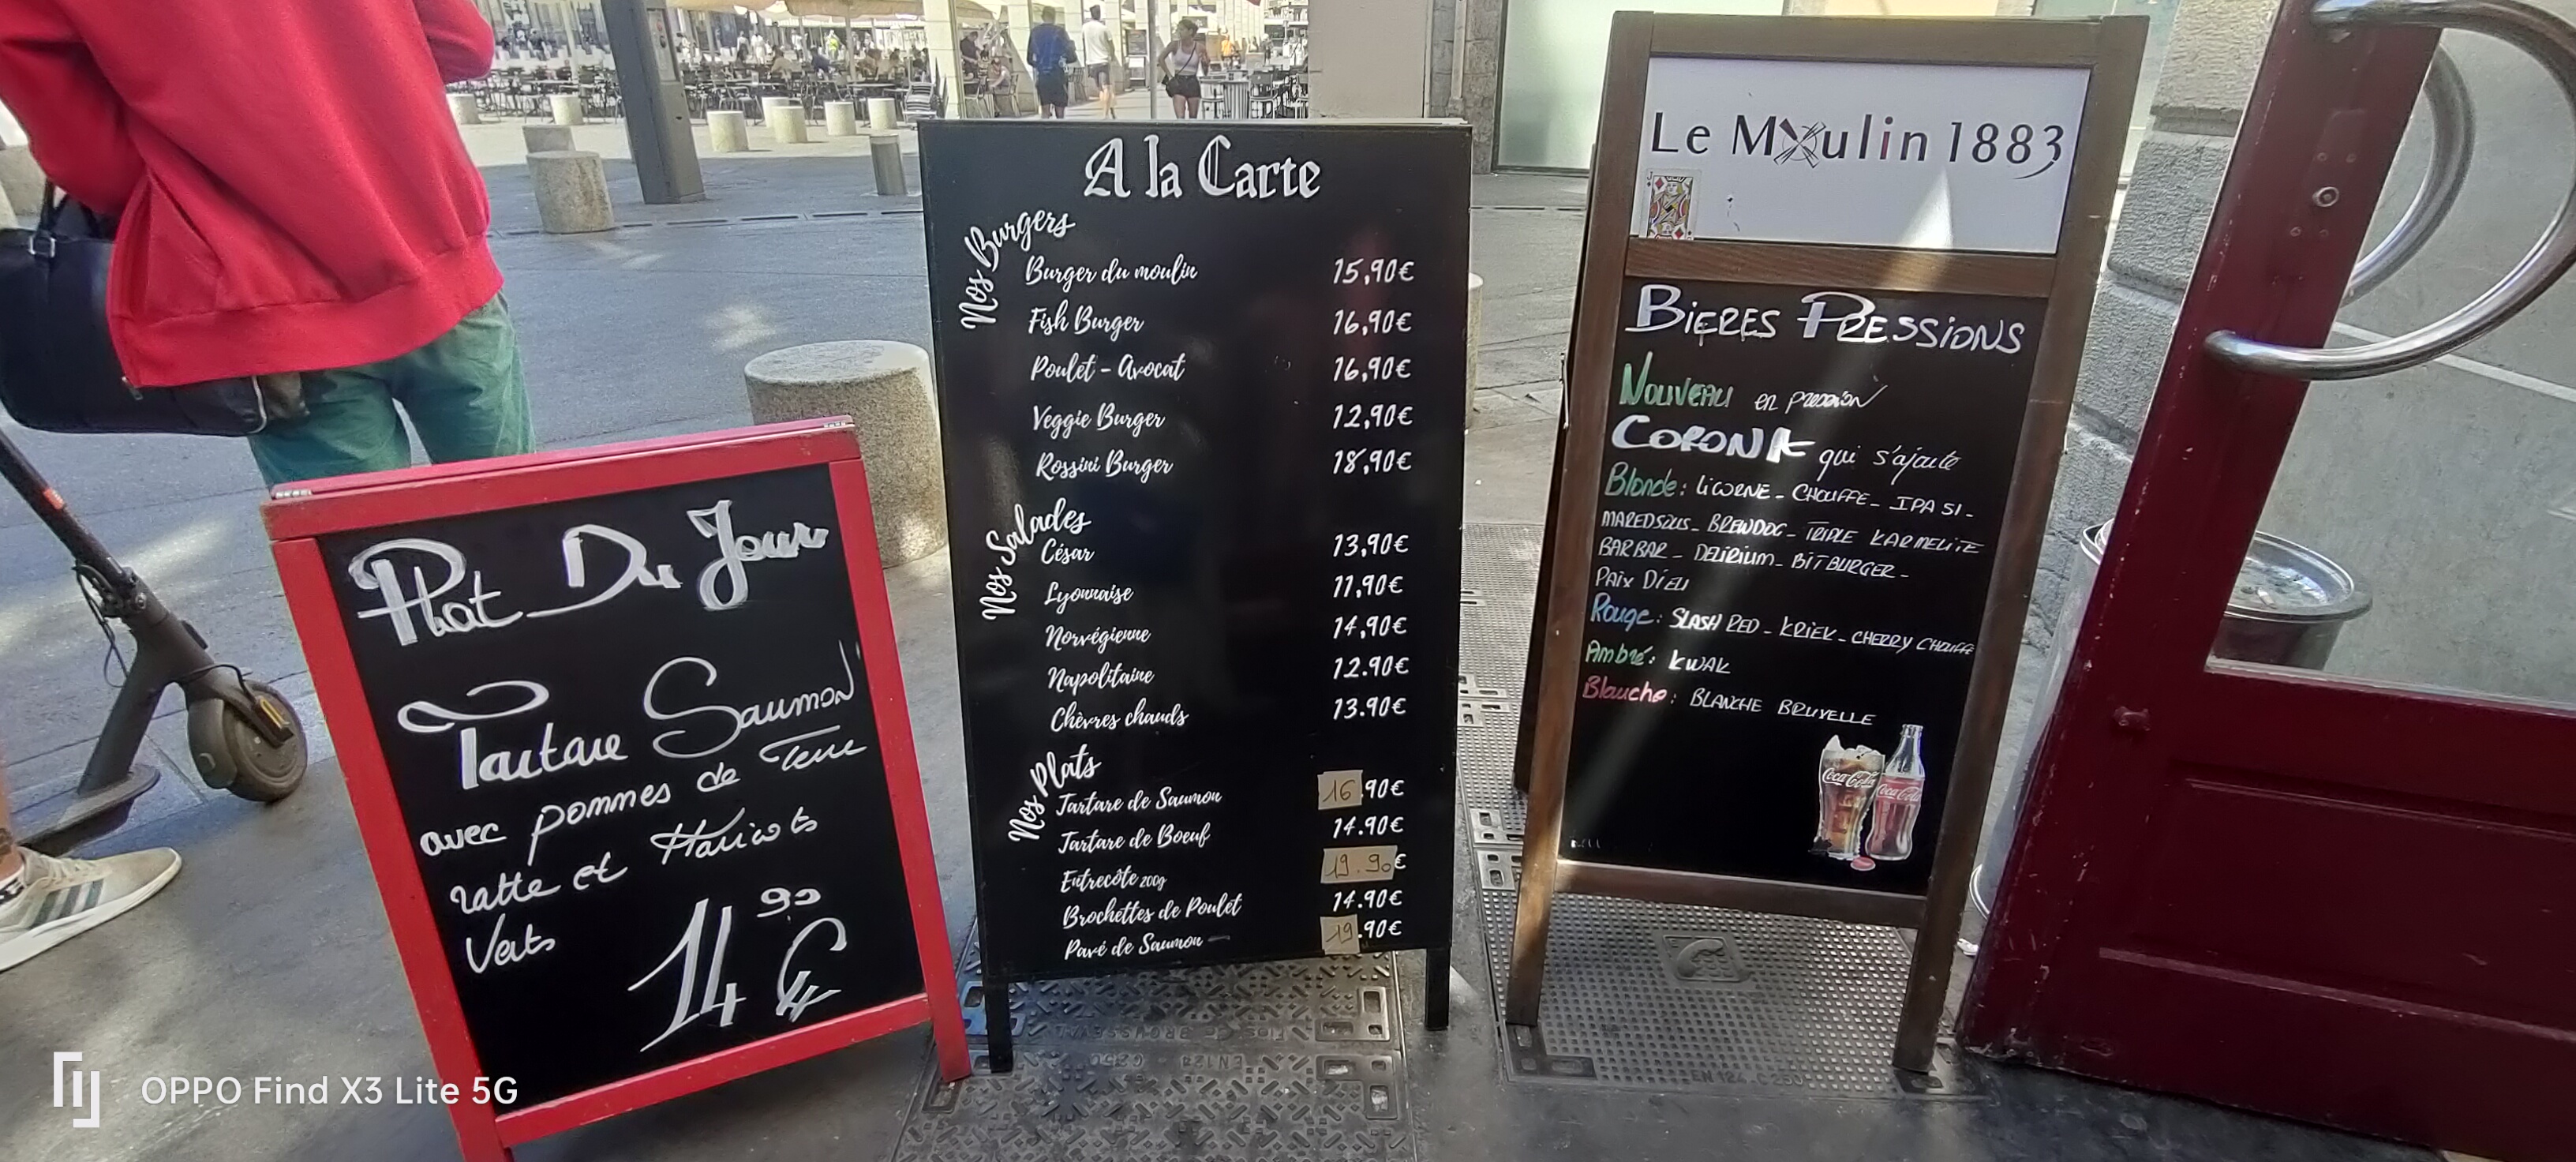 Plat Du Jour
Tartare Saumon
avec pommes de Terre
ratte et Haricots
Verts
14 90 €
A la Carte
Nos Burgers
Burger du moulin 15,90€
Fish Burger 16,90€
Poulet - Avocat 16,90€
Veggie Burger 12,90€
Rossini Burger 18,90€
Nos Salades
César 13,90€
Lyonnaise 11,90€
Norvégienne 14,90€
Napolitaine 12.90€
Chèvres chauds 13.90€
Nos Plats
Tartare de Saumon 16.90€
Tartare de Boeuf 14.90€
Entrecôte 200g 19.90€
Brochettes de Poulet 14.90€
Pavé de Saumon 19.90€
Le Moulin 1883
BIERES PRESSIONS
NOUVEAU en pression
CORONA qui s'ajoute
Blonde: LICORNE - CHOUFFE - IPA 51 -
MAREDSOUS - BREWDOG - TRIPLE KARMELITE
BARBAR - DELIRIUM - BITBURGER -
PAIX DIEU
Rouge: SLASH RED - KRIEK - CHERRY CHOUFFE
Ambré: KWAK
Blanche: BLANCHE BRUXELLE
Coca-Cola Coca-Cola
EN 124 C250
EN 124 C250
OPPO Find X3 Lite 5G